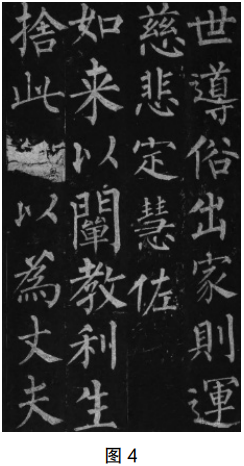 世導俗出家則運
慈悲定慧佐
如来以闡教利生
捨此以為丈夫
图 4